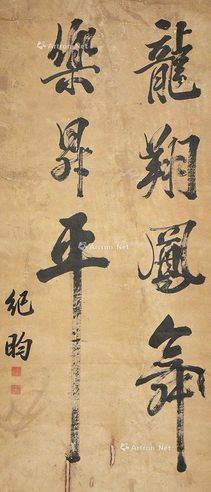 龍翔鳳舞
樂昇平
紀昀
Artron.Net
Artron.Net
Artron.Net
Artron.Net